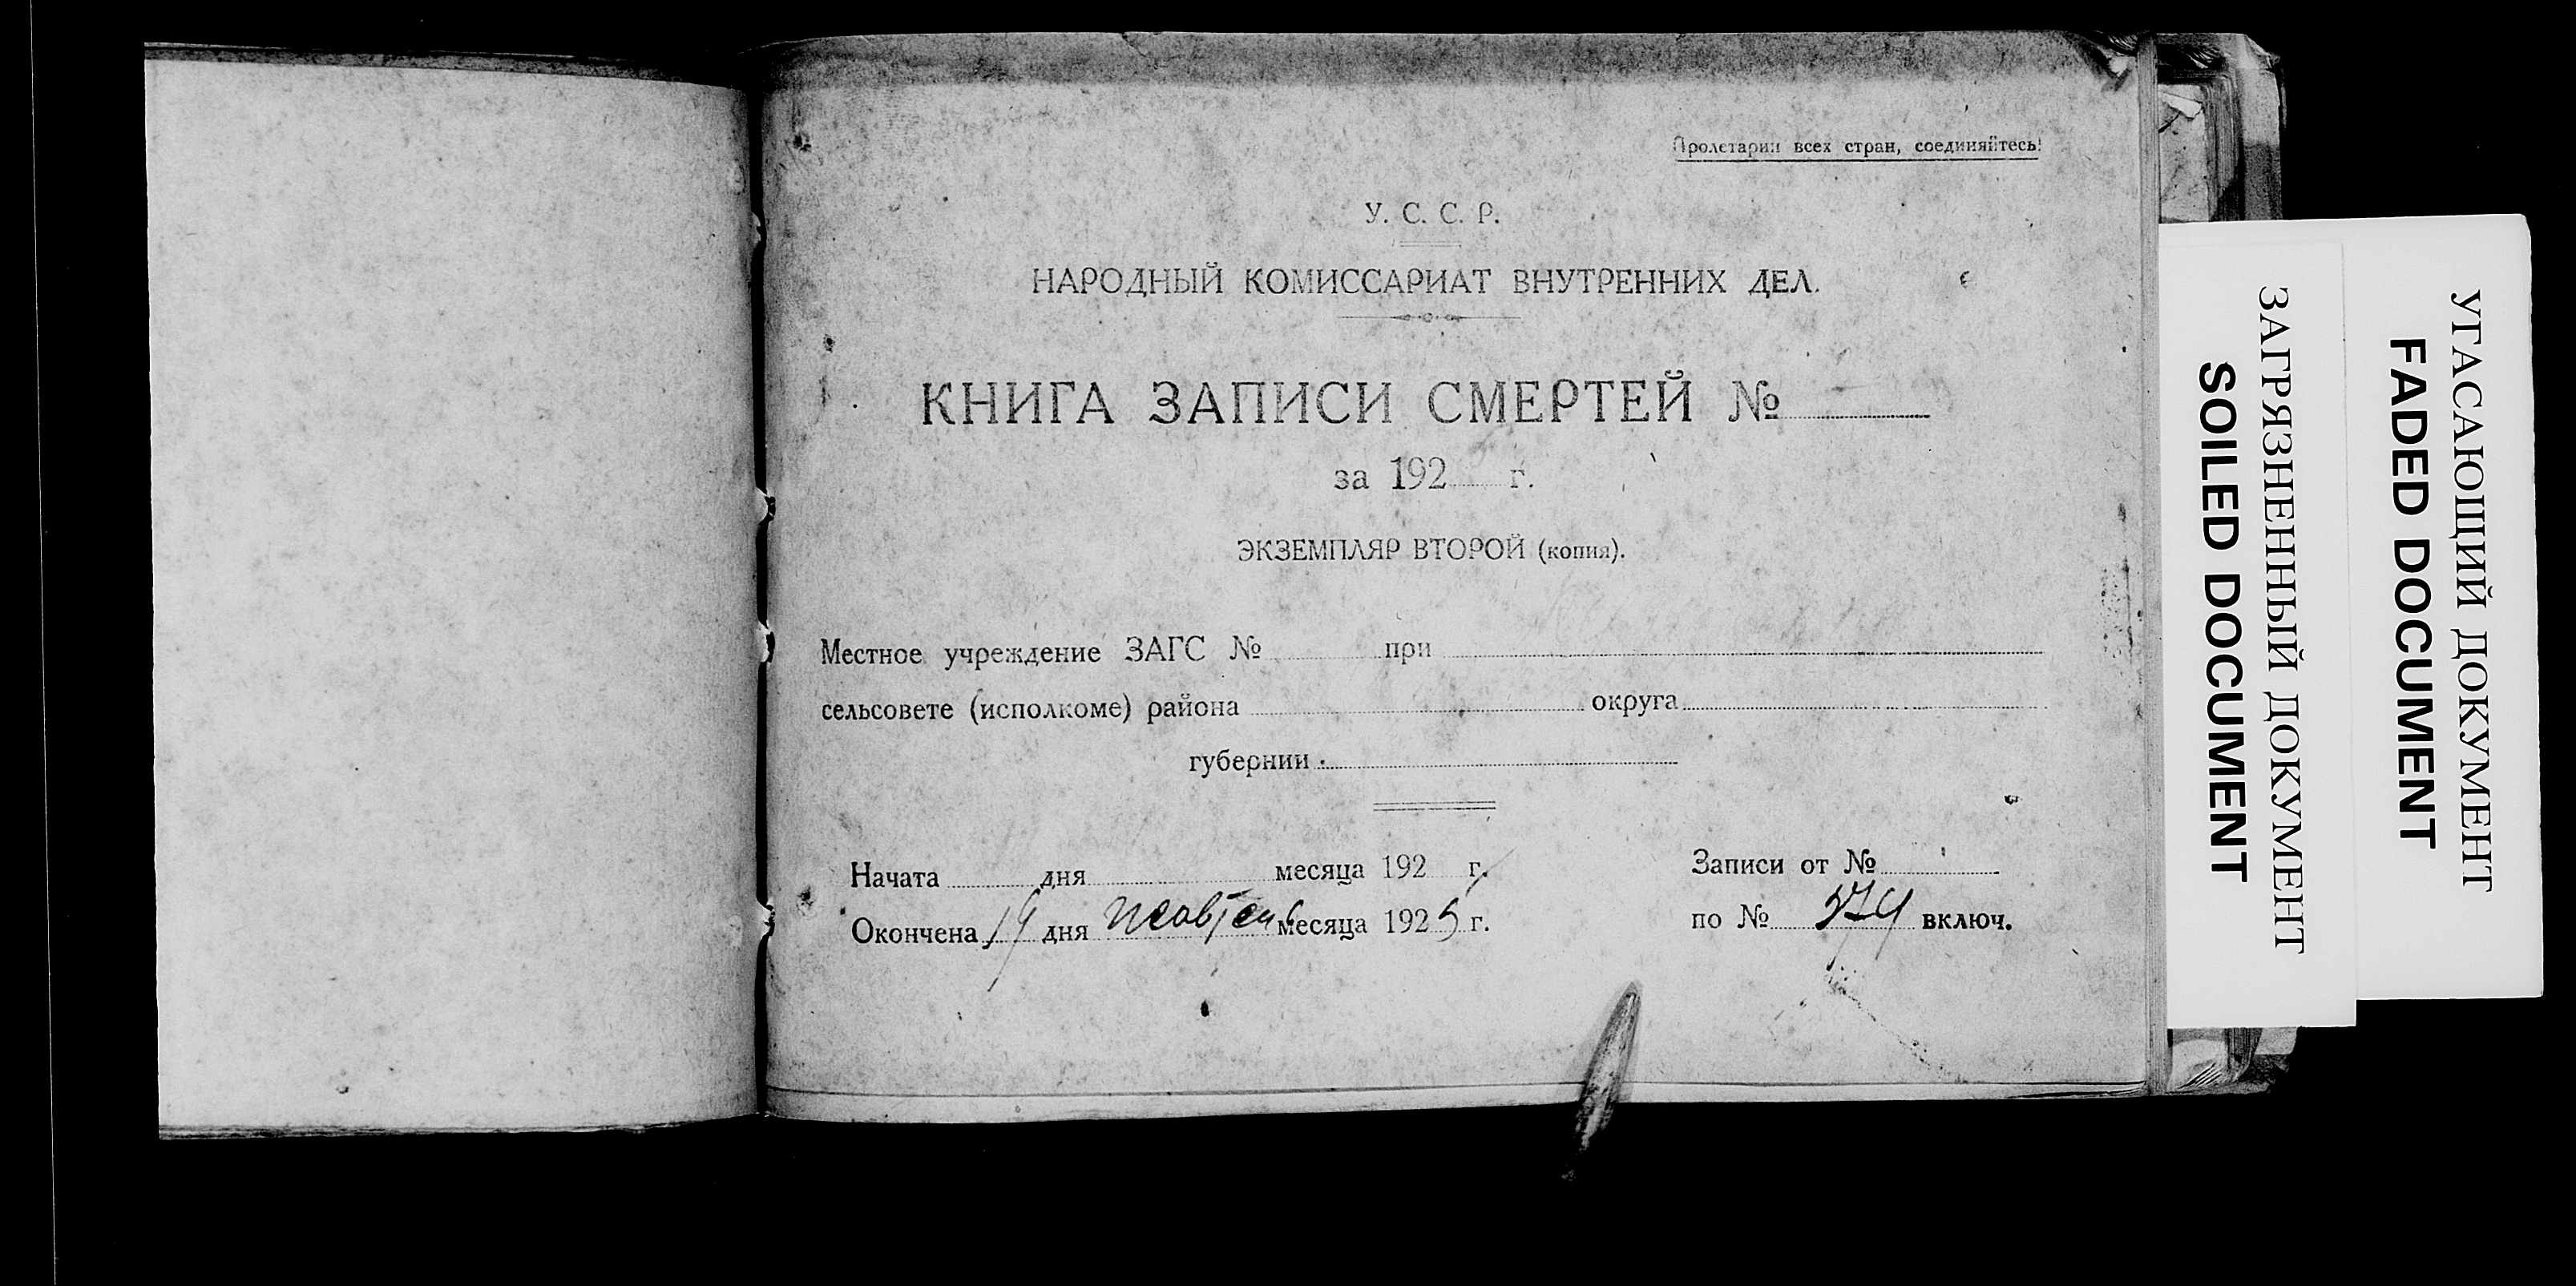 Пролетарии всех стран, соединяйтесь!
У. С. С. Р.
НАРОДНЫЙ КОМИССАРИАТ ВНУТРЕННИХ ДЕЛ.
КНИГА ЗАПИСИ СМЕРТЕЙ №
за 192 г.
ЭКЗЕМПЛЯР ВТОРОЙ (копия).
Местное учреждение ЗАГС № при
сельсовете (исполкоме) района округа
губернии
Начата дня месяца 192 г.
Окончена 19 дня месяца 1925 г.
Записи от №
по № 274 включ.
ЗАГРЯЗНЕННЫЙ ДОКУМЕНТ
SOILED DOCUMENT
УГАСАЮЩИЙ ДОКУМЕНТ
FADED DOCUMENT